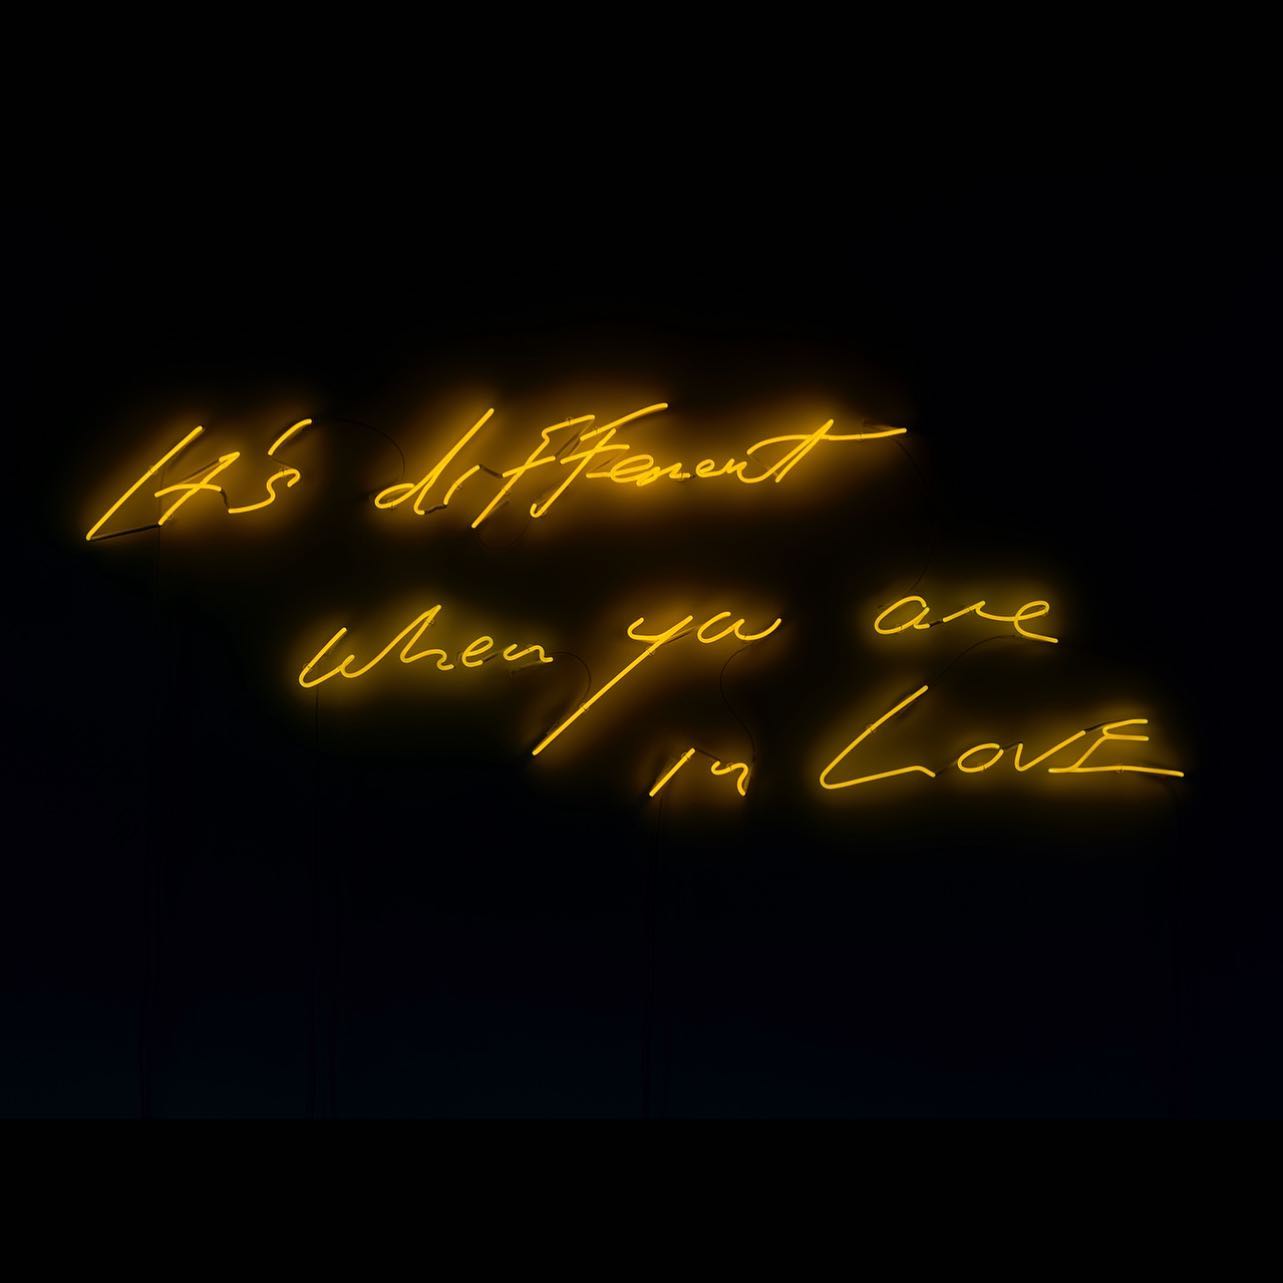 It's different
when you are
in LovE